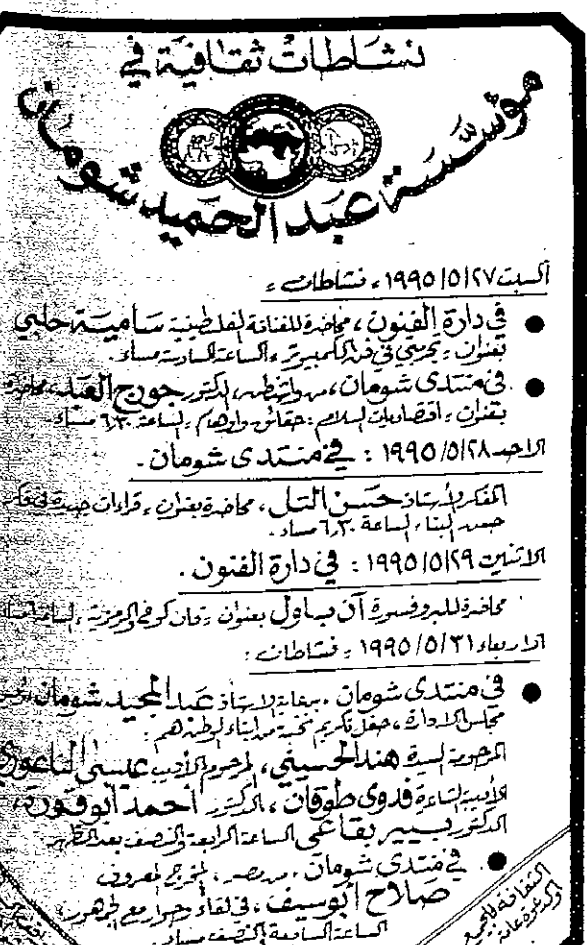 نشاطات ثقافية في
مؤسسة عبد الحميد شومان
السبت ١٩٩٥/٥/٢٧ ، نشاطات :
● في دارة الفنون ، محاضرة للفنانة الفلسطينية سامية حلبي
بعنوان : تجربتي في فن الكمبيوتر ، الساعة السادسة مساءً .
● في منتدى شومان ، من واشنطن ، الدكتور جورج العبد ، محاضرة
بعنوان : اقتصاديات السلام : حقائق وأوهام ، الساعة ٦٫٣٠ مساءً
الاحد ١٩٩٥/٥/٢٨ : في منتدى شومان .
المفكر الأستاذ حسن التل ، محاضرة بعنوان ، قراءات جديدة في فكر
حسن البنا ، الساعة ٦٫٣٠ مساءً .
الاثنين ١٩٩٥/٥/٢٩ : في دارة الفنون .
محاضرة للبروفسورة آن بعنوان : فان كوخ والرمزية ، الساعة مساءً
الاربعاء ١٩٩٥/٥/٣١ : نشاطات :
● في منتدى شومان ، برعاية الاستاذ عبد المجيد شومان
مجلس الادارة ، حفل تكريم نخبة من ابناء الوطن هم :
المرحومة السيدة هند الحسيني ، المرحوم الأديب عيسى الناعوري
الأديبة الشاعرة فدوى طوقان ، الدكتور أحمد أبو قورة ،
الدكتور الساعة الرابعة والنصف بعد الظهر
● في منتدى شومان ، من مصر ، المخرج المعروف
صلاح أبو سيف ، في لقاء وحوار مع الجمهور
الساعة السابعة والنصف مساءً .
الثقافة للجميع
الدعوة عامة